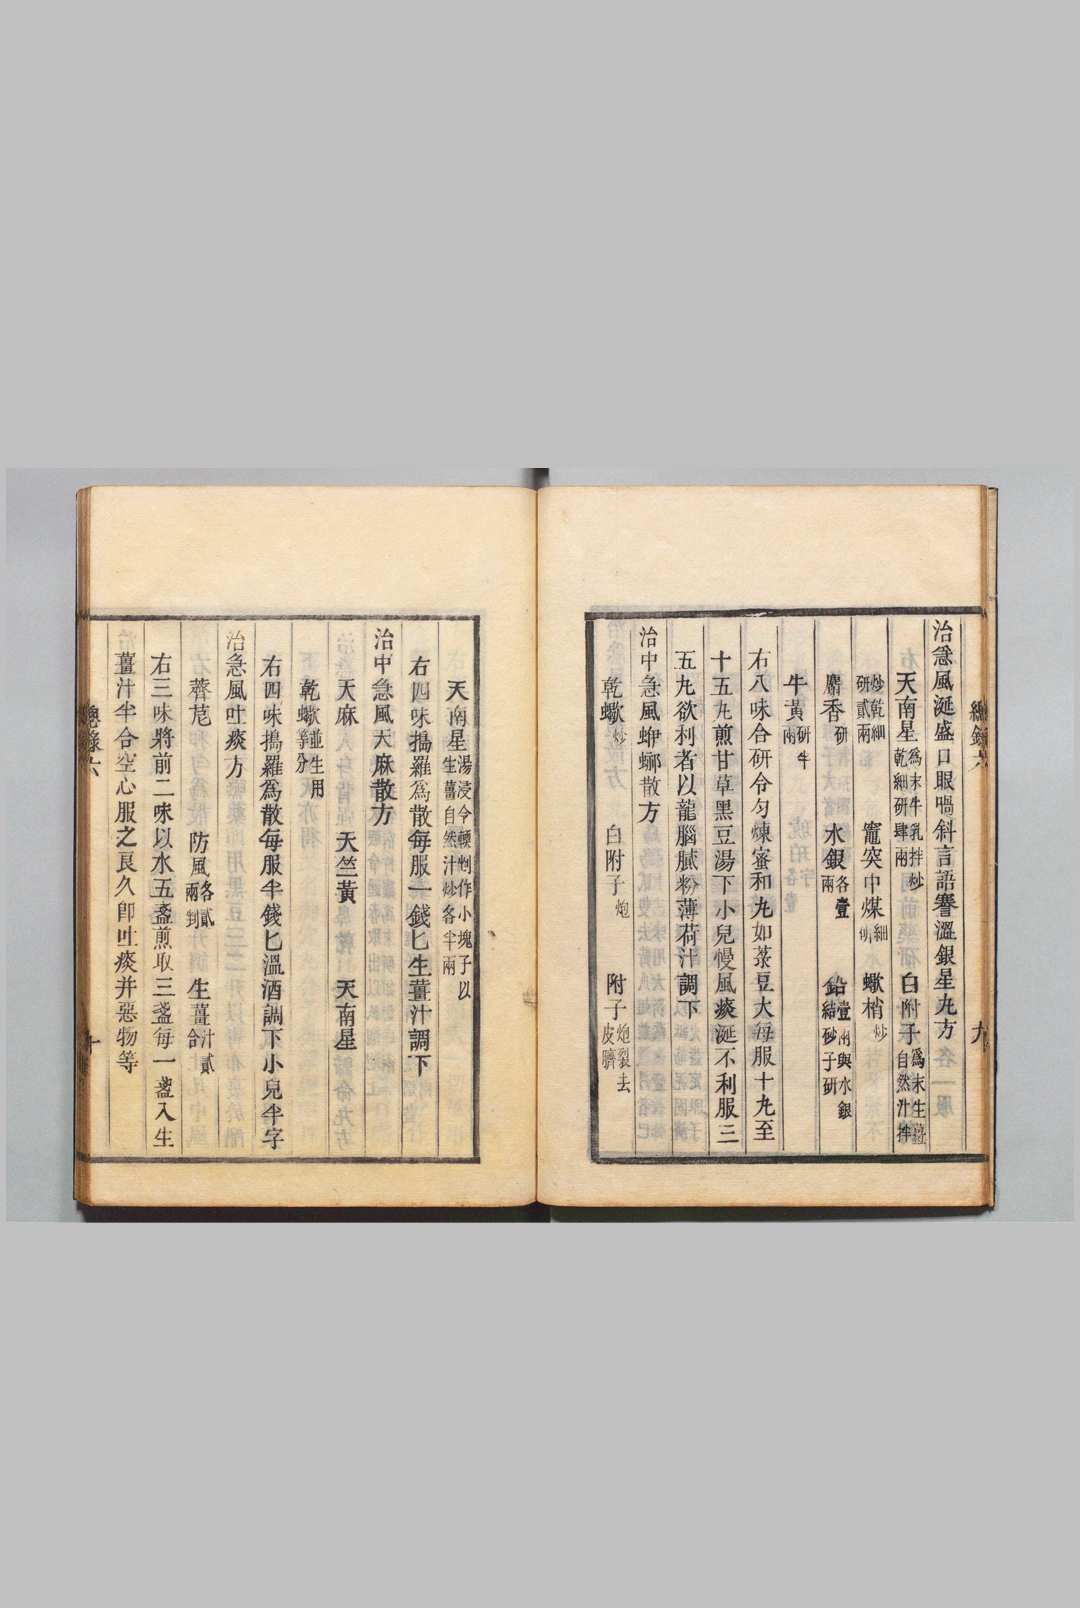 治急風涎盛口眼喎斜言語謇澀銀星丸方
天南星爲末牛乳拌炒乾細研肆兩 白附子爲末生薑自然汁拌
炒乾細研貳兩 竈突中煤細研 蠍梢炒
麝香研 水銀各壹兩 鉛壹兩與水銀結砂子研
牛黃研半兩
右八味合研令勻煉蜜和丸如菉豆大每服十丸至
十五丸煎甘草黑豆湯下小兒慢風痰涎不利服三
五丸欲利者以龍腦膩粉薄荷汁調下
治中急風蝉螂散方
乾蠍炒 白附子炮 附子炮裂去皮臍
天南星湯浸令輭剉作小塊子以生薑自然汁炒各半兩
右四味擣羅爲散每服一錢匕生薑汁調下
治中急風天麻散方
天麻 天竺黃 天南星
乾蠍並生用等分
右四味擣羅爲散每服半錢匕溫酒調下小兒半字
治急風吐痰方
薺苨 防風各貳兩剉 生薑汁貳合
右三味將前二味以水五盞煎取三盞每一盞入生
薑汁半合空心服之良久卽吐痰并惡物等
總錄六 九
總錄六 十